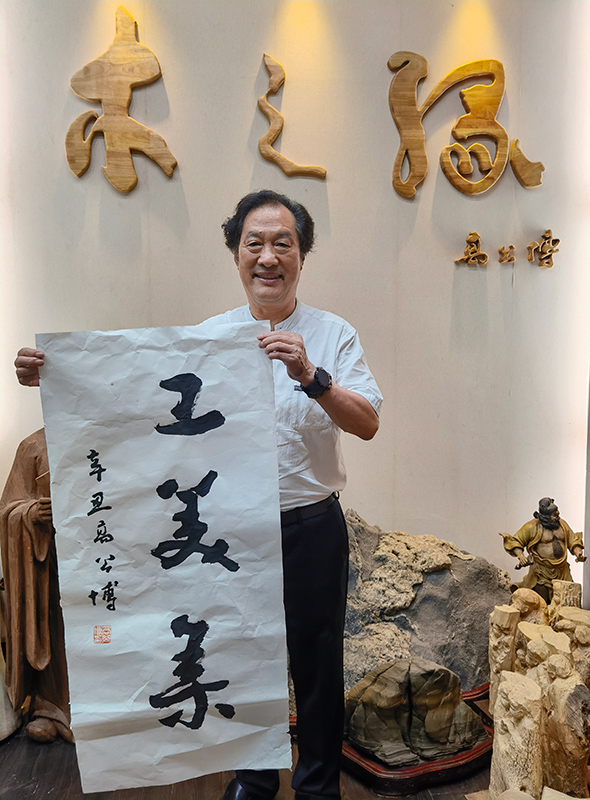 木之缘
高公博
工美集
辛丑高公博